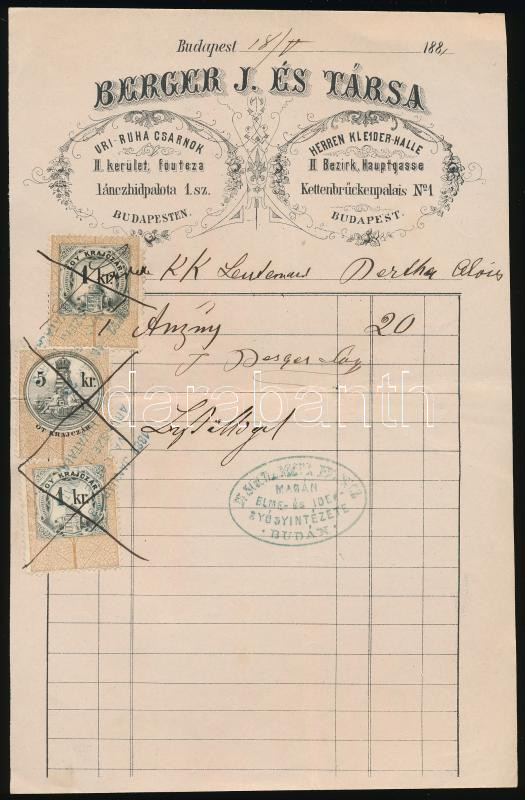 Budapest 18/ 1881
BERGER J. ÉS TÁRSA
URI-RUHA CSARNOK
II. kerület, főutcza
Lánczhidpalota 1. sz.
BUDAPESTEN.
HERREN KLEIDER-HALLE
II Bezirk, Hauptgasse
Kettenbrückenpalais No 1
BUDAPEST.
KK Bertha Alois
EGY KRAJCZÁR
1 kr.
1 Anzug 20
J Berger
5 kr.
ÖT KRAJCZÁR
EGY KRAJCZÁR
1 kr.
MAGÁN
ELME- ÉS IDEG-
GYÓGYINTÉZETE
BUDÁN
darabanth